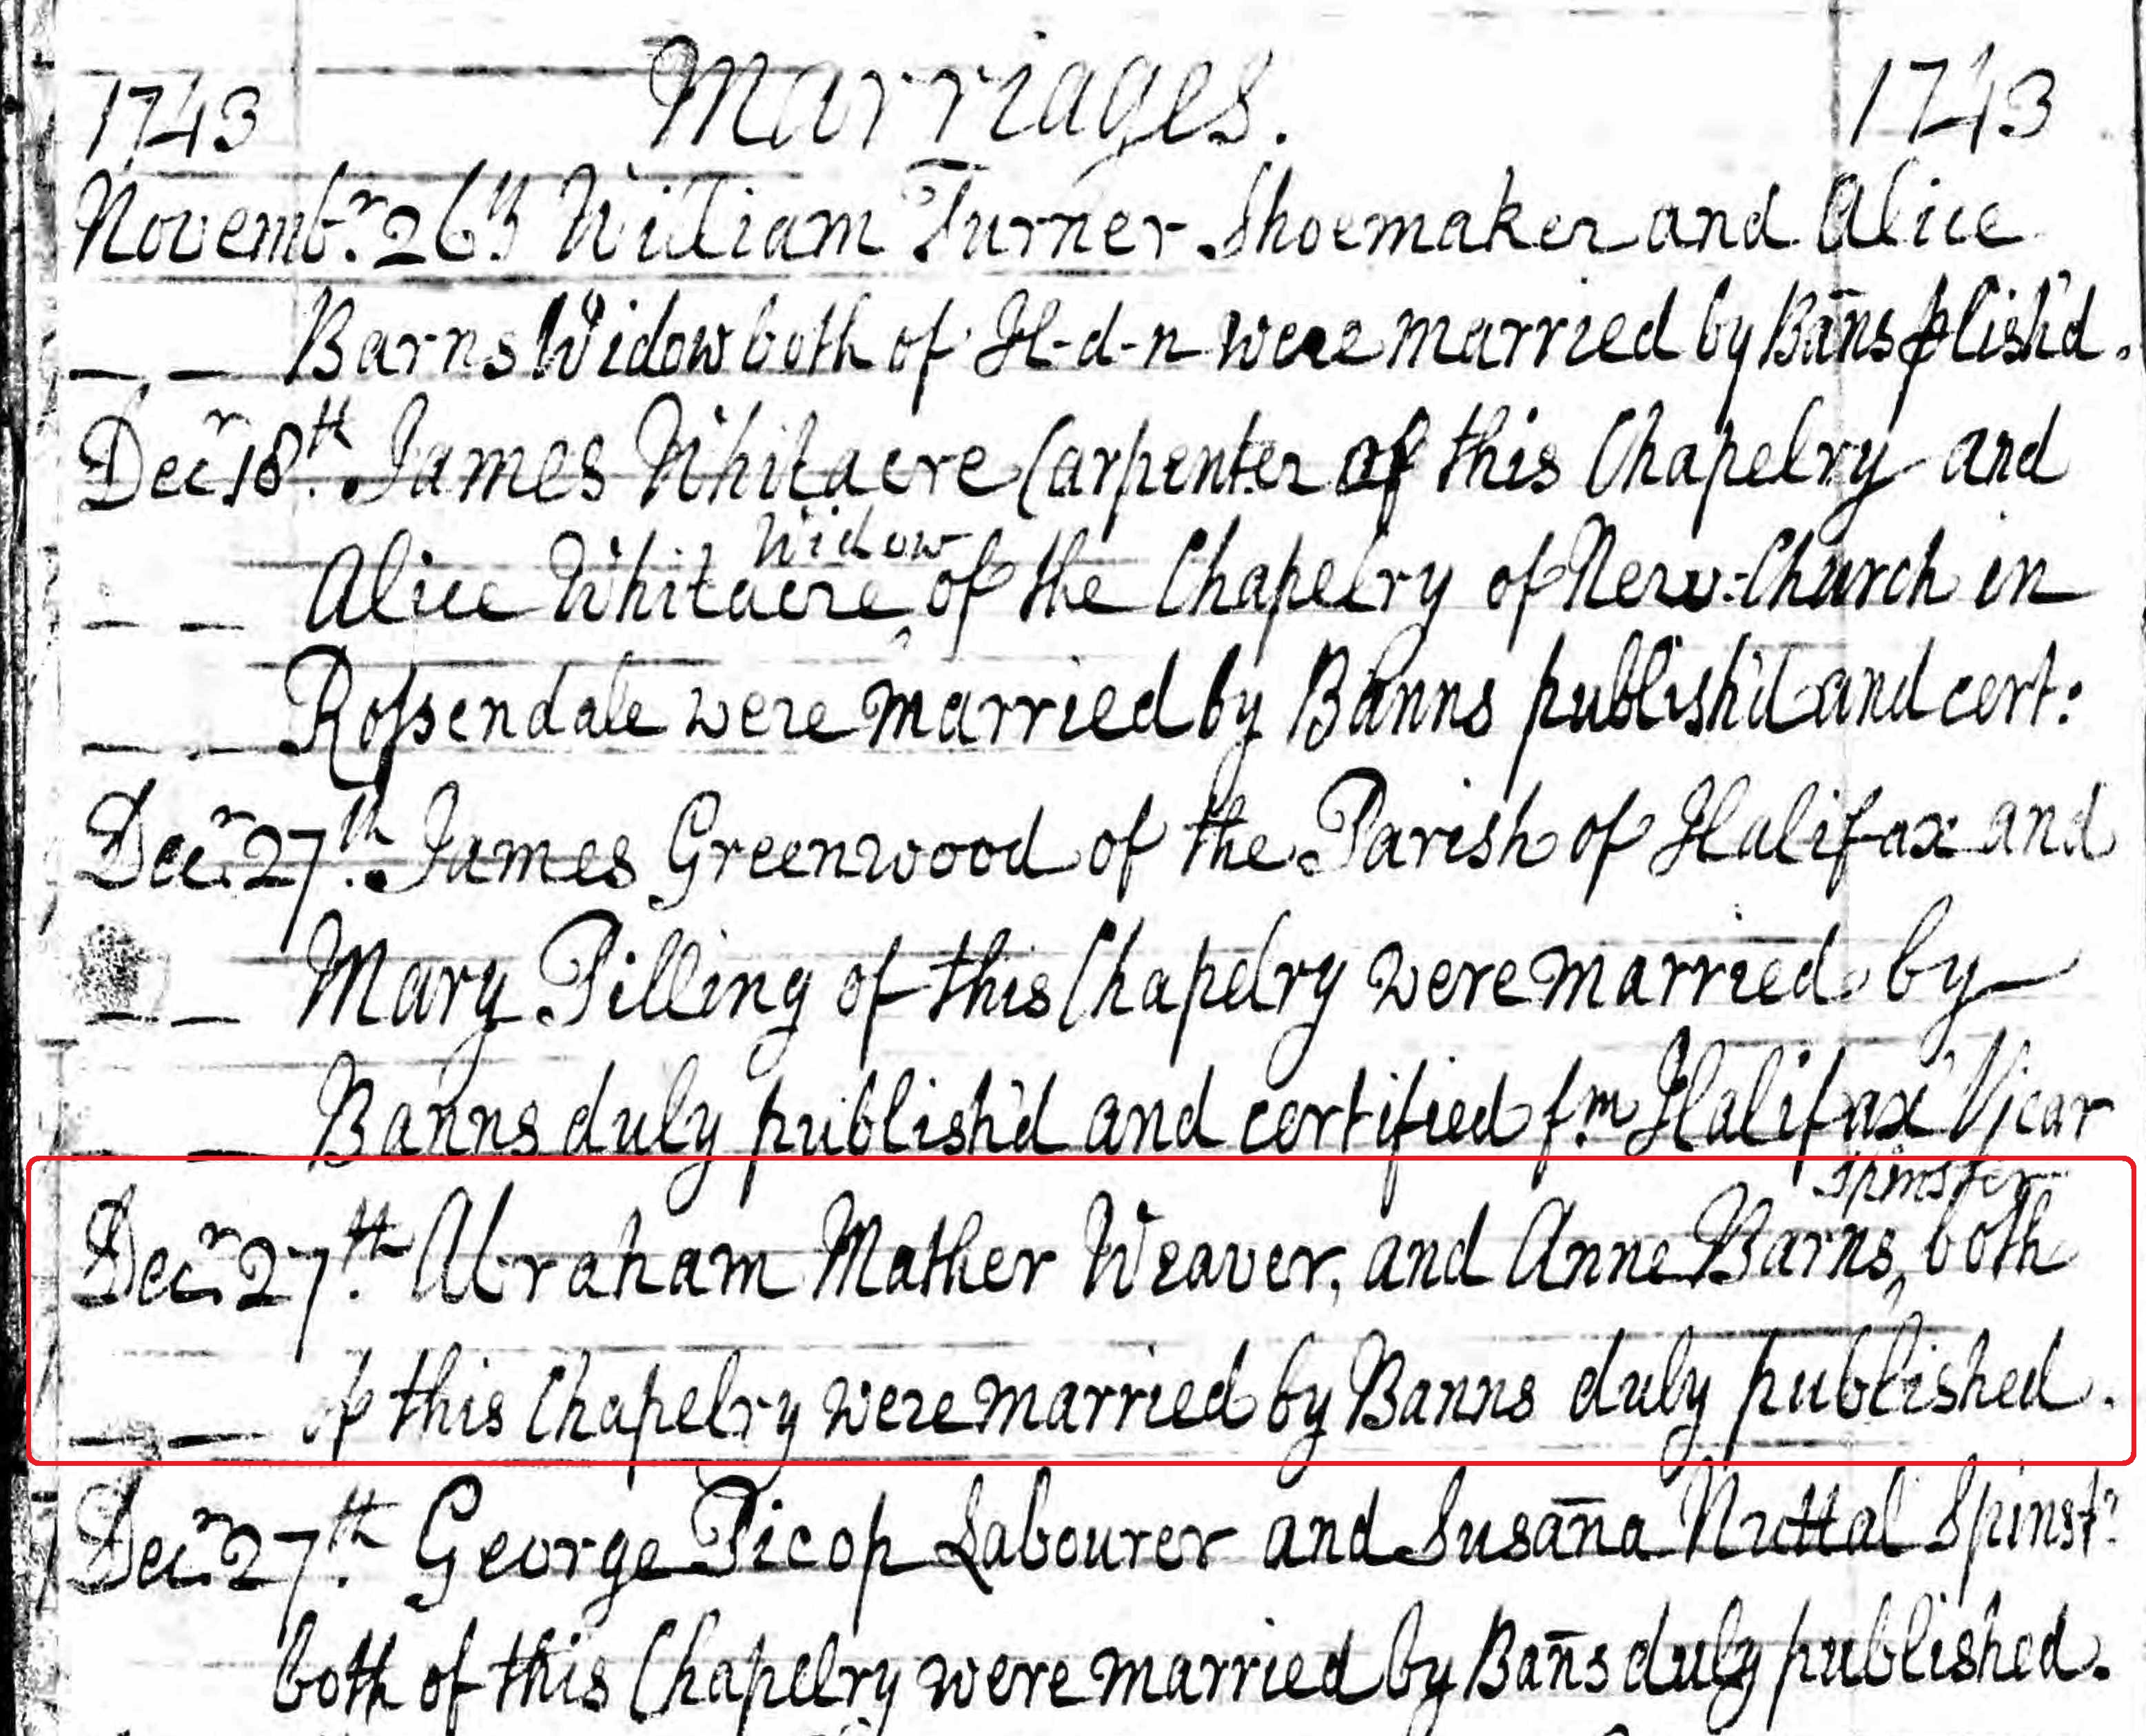 1743 Marriages. 1743
Novembr. 26th William Turner Shoemaker and Alice
— — Barns Widow both of H-d-n were married by Bañs plish'd.
Decr 18th. James Whitacre Carpenter of this Chapelry and
Widow
— — Alice Whitacre, of the Chapelry of New-Church in
— — Rossendale were married by Banns publish'd and cert:
Decr. 27th. James Greenwood of the Parish of Halifax and
— — Mary Pilling of this Chapelry were married by —
— — Banns duly publish'd and certified f.m Halifax Vicar
Spinster
Decr. 27th. Abraham Mather Weaver, and Anne Barns, both
— — of this Chapelry were married by Banns duly published.
Decr. 27th. George Picop Labourer and Susaña Nuttal Spinstr
both of this Chapelry were married by Bañs duly published.